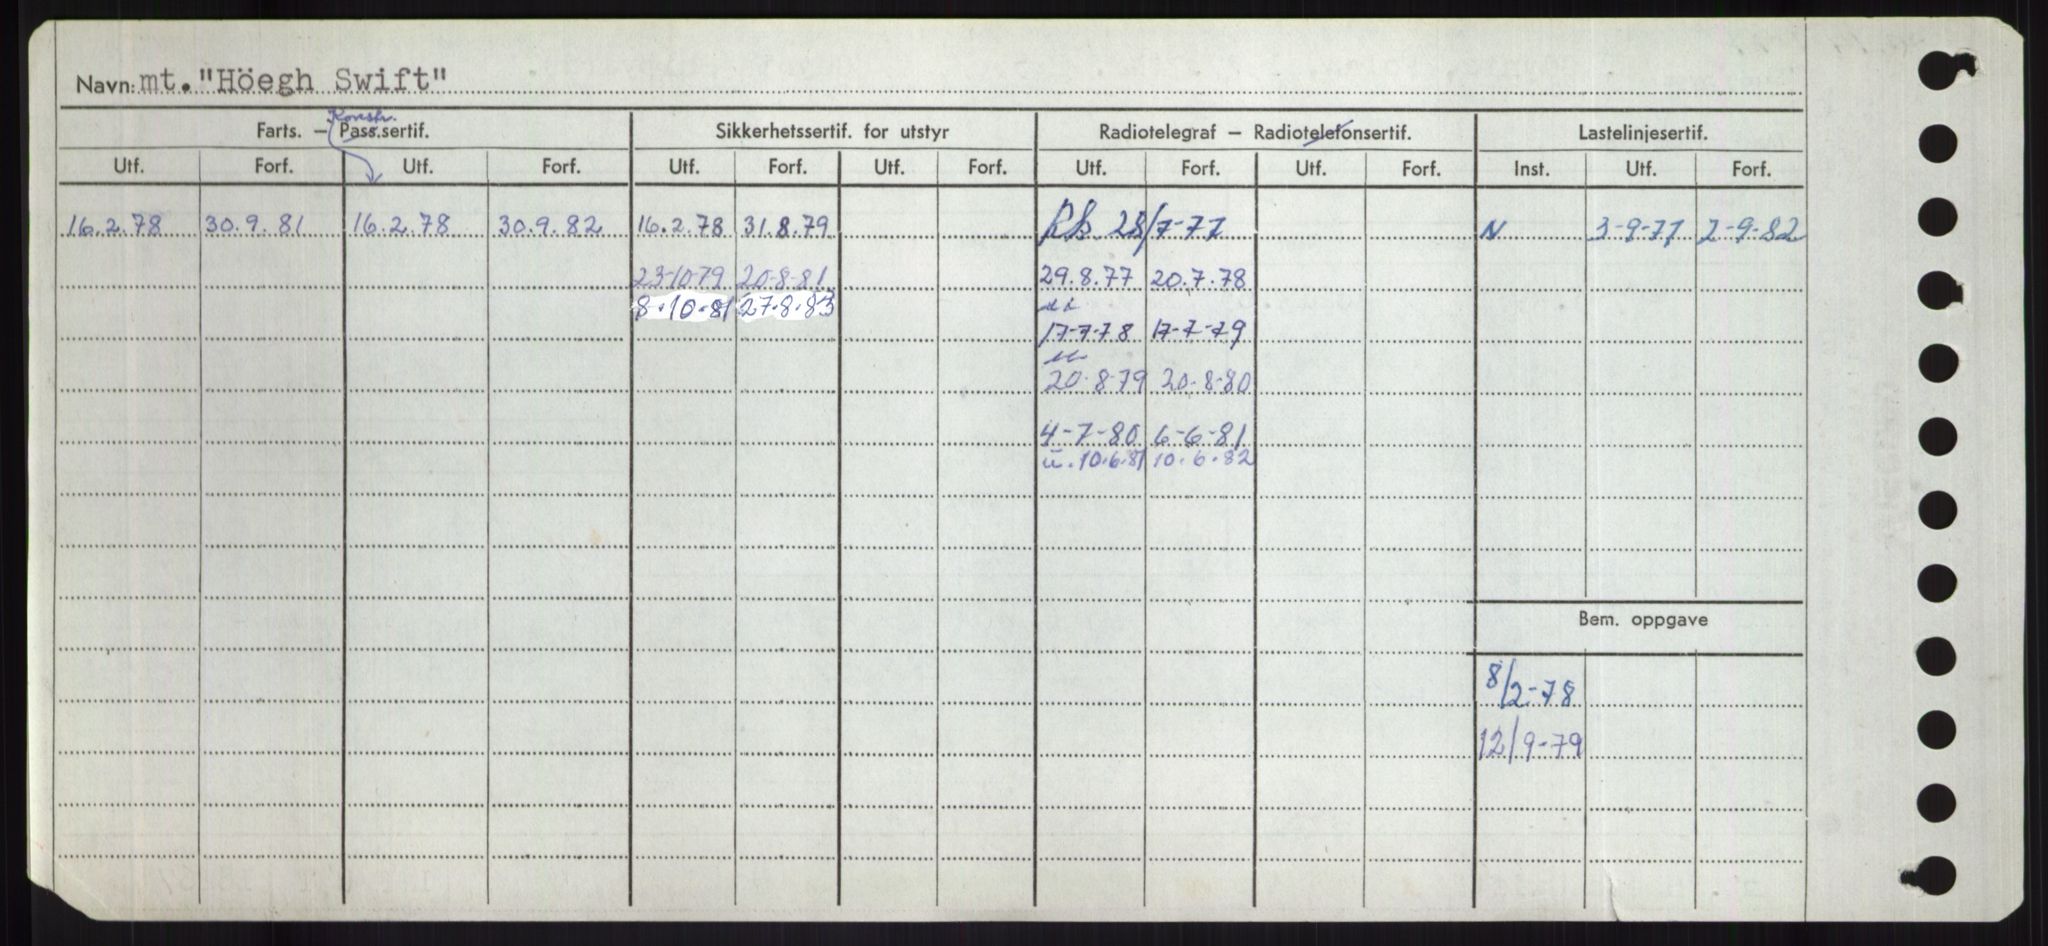 Navn: mt. "Höegh Swift"
Konstr.
Farts. – Pass.sertif. Sikkerhetssertif. for utstyr Radiotelegraf – Radiotelefonsertif. Lastelinjesertif.
Utf. Forf. Utf. Forf. Utf. Forf. Utf. Forf. Utf. Forf. Utf. Forf. Inst. Utf. Forf.
16.2.78 30.9.81 16.2.78 30.9.82 16.2.78 31.8.79 28/7-77 N 3-9-77 2-9-82
23-10-79 20-8-81 29.8.77 20.7.78
8.10.81 27.8.83
17-7-78 17-7-79
20-8-79 20-8-80
4-7-80 6-6-81
u. 10.6.81 10.6.82
Bem. oppgave
8/2-78
12/9-79